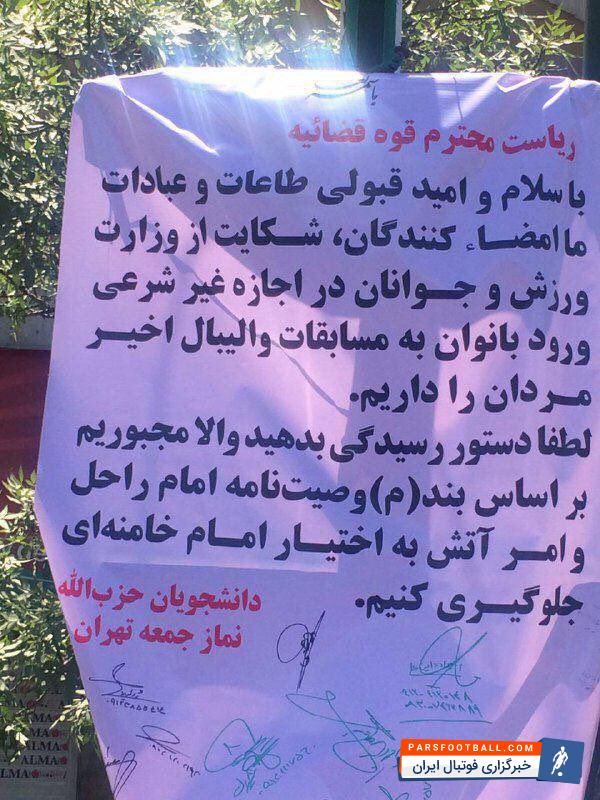 ریاست محترم قوه قضائیه
با سلام و امید قبولی طاعات و عبادات
ما امضاء کنندگان، شکایت از وزارت
ورزش و جوانان در اجازه غیر شرعی
ورود بانوان به مسابقات والیبال اخیر
مردان را داریم.
لطفا دستور رسیدگی بدهید والا مجبوریم
بر اساس بند(م) وصیت‌نامه امام راحل
و امر آتش به اختیار امام خامنه‌ای
جلوگیری کنیم.
دانشجویان حزب‌الله
نماز جمعه تهران
ALMA
PARSFOOTBALL.COM
خبرگزاری فوتبال ایران